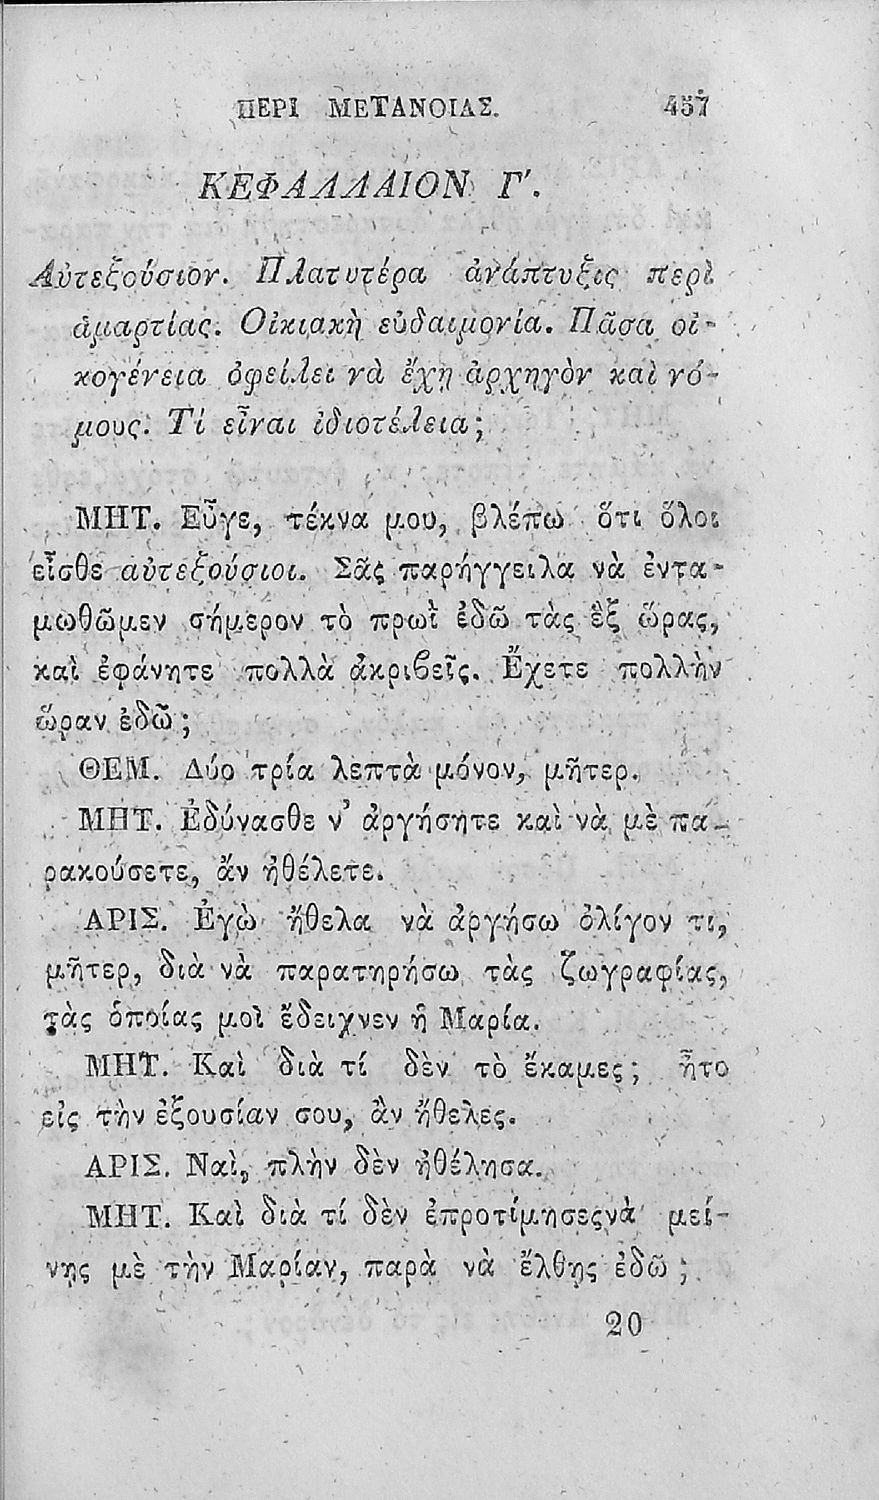 ΠΕΡΙ ΜΕΤΑΝΟΙΑΣ. 457
ΚΕΦΑΛΛΑΙΟΝ Γ'.
Αὐτεξούσιον. Πλατυτέρα ἀνάπτυξις περὶ
ἁμαρτίας. Οἰκιακὴ εὐδαιμονία. Πᾶσα οἰ-
κογένεια ὀφείλει νὰ ἔχῃ ἀρχηγὸν καὶ νό-
μους. Τί εἶναι ἰδιοτέλεια;
ΜΗΤ. Εὖγε, τέκνα μου, βλέπω ὅτι ὅλοι
εἶσθε αὐτεξούσιοι. Σᾶς παρήγγειλα νὰ ἐντα-
μωθῶμεν σήμερον τὸ πρωῒ ἐδῶ τὰς ἓξ ὥρας,
καὶ ἐφάνητε πολλὰ ἀκριβεῖς. Ἔχετε πολλὴν
ὥραν ἐδῶ;
ΘΕΜ. Δύο τρία λεπτὰ μόνον, μῆτερ.
ΜΗΤ. Ἐδύνασθε ν' ἀργήσητε καὶ νὰ μὲ πα-
ρακούσετε, ἄν ἠθέλετε.
ΑΡΙΣ. Ἐγὼ ἤθελα νὰ ἀργήσω ὀλίγον τι,
μῆτερ, διὰ νὰ παρατηρήσω τὰς ζωγραφίας,
τὰς ὁποίας μοὶ ἔδειχνεν ἡ Μαρία.
ΜΗΤ. Καὶ διὰ τί δὲν τὸ ἔκαμες; ἦτο
εἰς τὴν ἐξουσίαν σου, ἂν ἤθελες.
ΑΡΙΣ. Ναὶ, πλὴν δὲν ἠθέλησα.
ΜΗΤ. Καὶ διὰ τί δὲν ἐπροτίμησεςνὰ μεί-
νῃς μὲ τὴν Μαρίαν, παρὰ νὰ ἔλθῃς ἐδῶ;
20